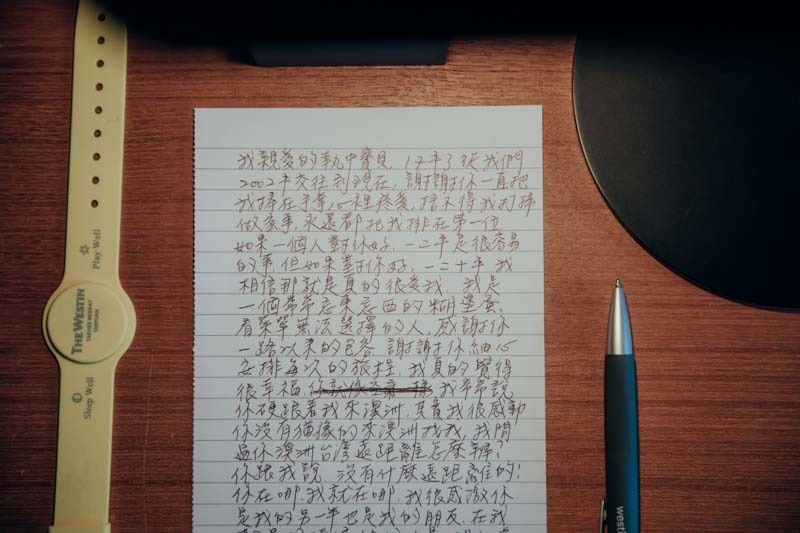 THE WESTIN
TASHEE RESORT
TAOYUAN
Play Well
Sleep Well
我親愛的執中寶貝，17年了從我們
2002年交往到現在，謝謝你一直把
我捧在手掌心裡疼愛，捨不得我打掃
做家事，永遠都把我排在第一位
如果一個人對你好，一二年是很容易
的事，但如果對你好，一二十年我
相信那就是真的很愛我，我是
一個常常忘東忘西的糊塗蛋，
看菜單無法選擇的人，感謝你
一路以來的包容 謝謝你細心
安排每次的旅程，我真的覺得
很幸福，我常常說
你硬跟著我來澳洲，其實我很感動
你沒有猶豫的來澳洲找我，我問
過你澳洲台灣遠距離怎麼辦?
你跟我說 沒有什麼遠距離的!
你在哪，我就在哪，我很感激你
是我的另一半也是我的朋友，在我
westi